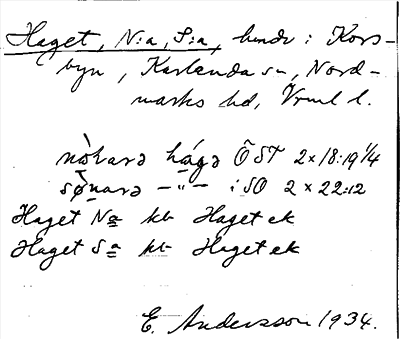 Haget, N:a, S:a, hmdr i Kors-
byn, Karlanda sn, Nord-
marks hd, Vrml l.
nòƚarə hágə ÖST 2×18:19 1/4
sønarə –"– i SO 2×22:12
Haget Na kb Haget ek
Haget Sa kb Haget ek
E. Andersson 1934.